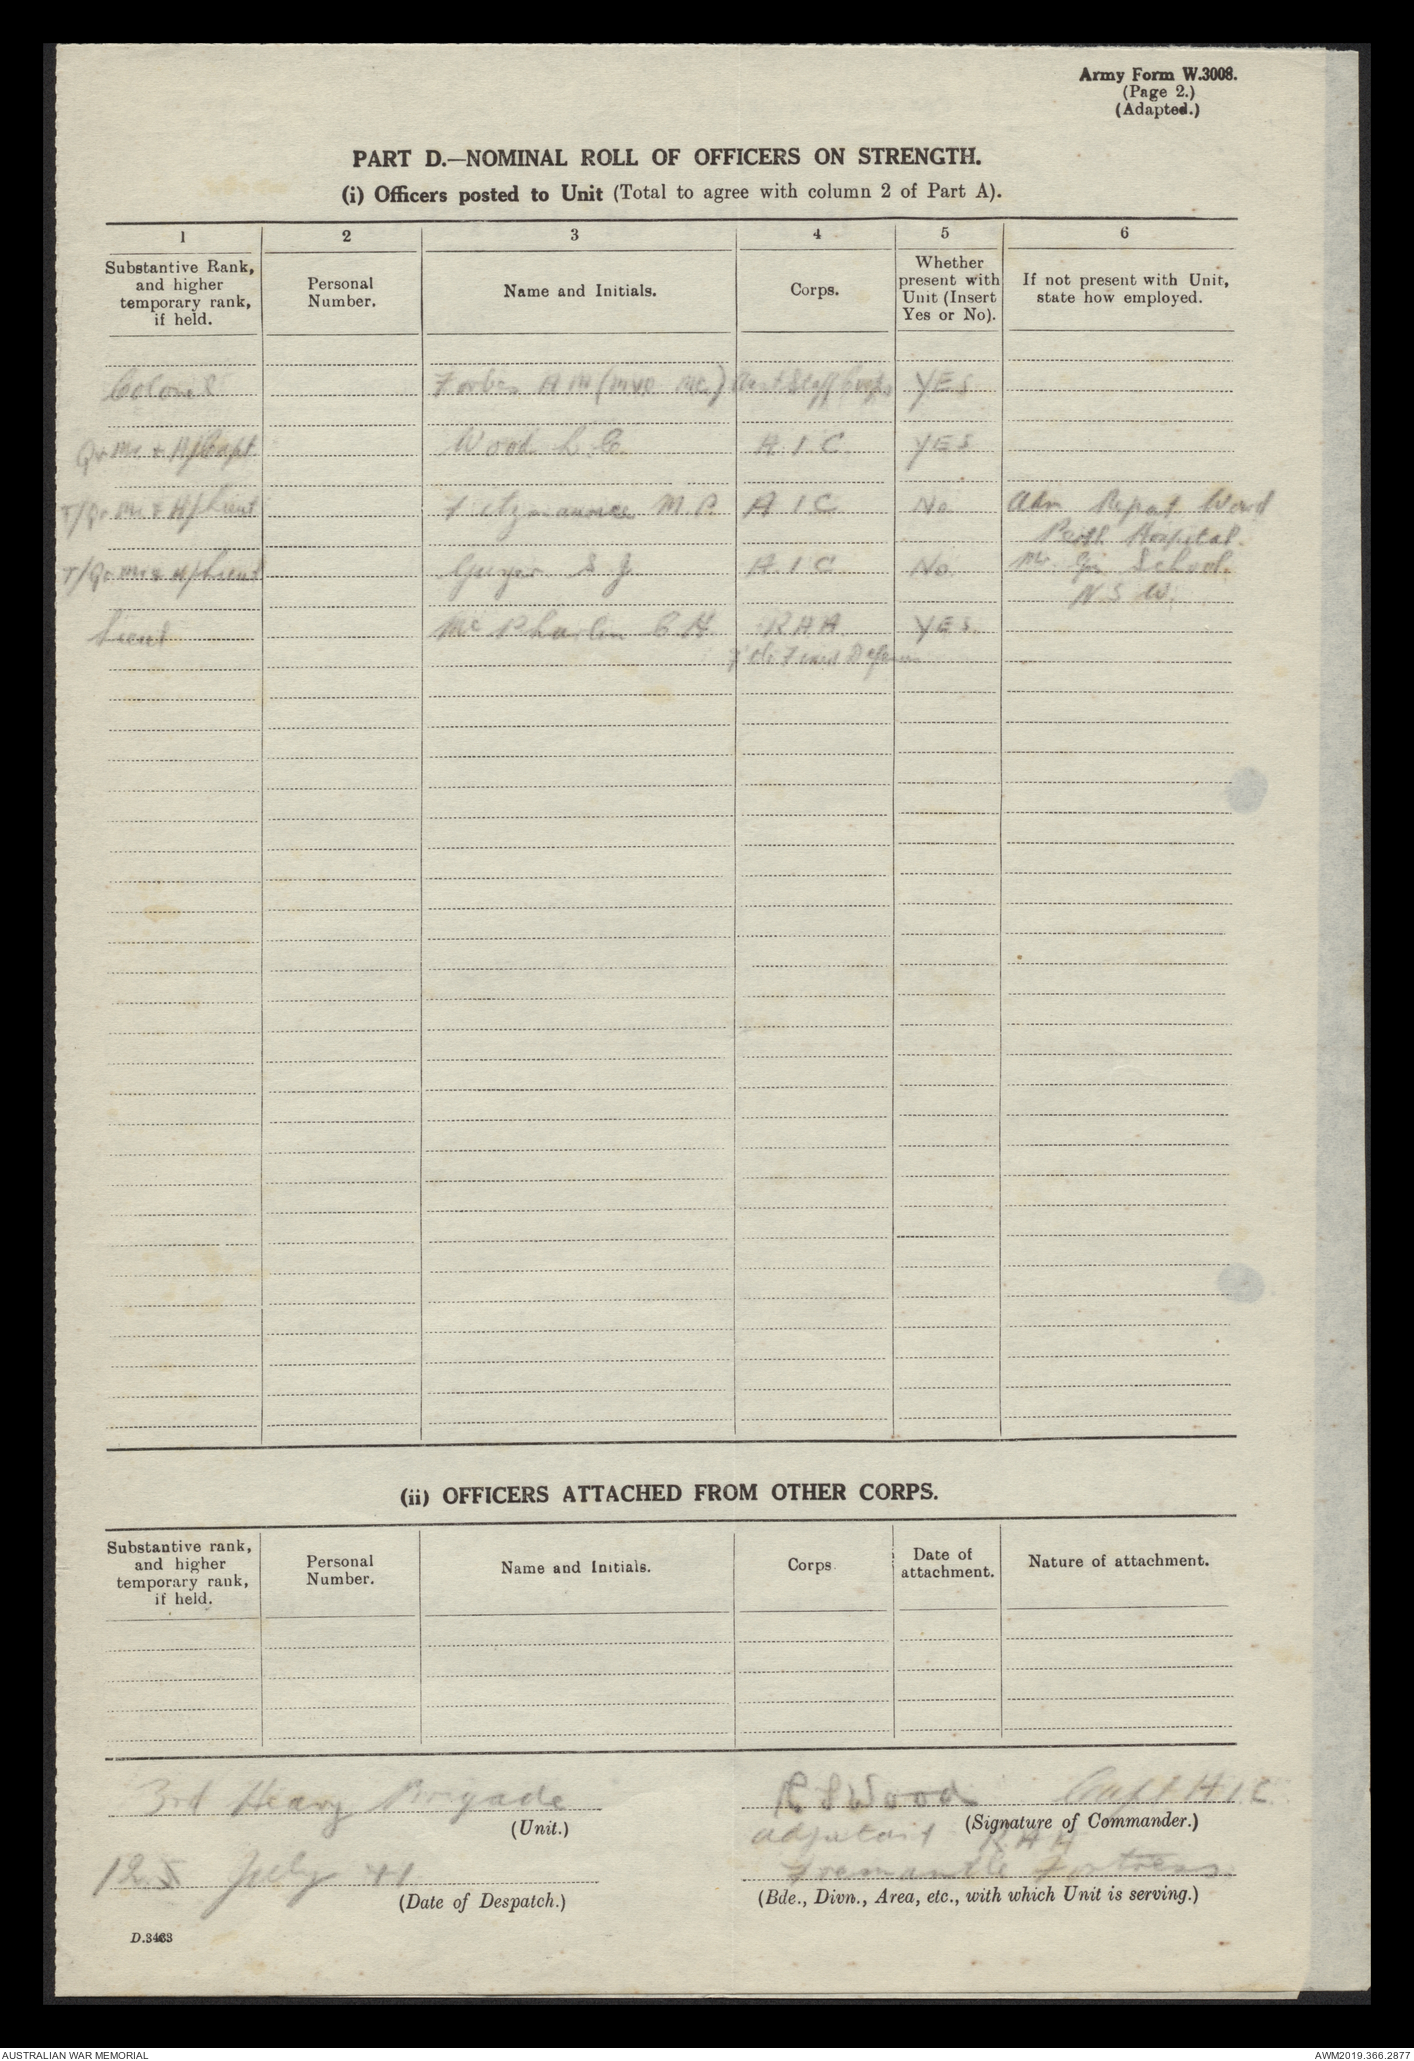 Army Form W.3008.
(Page 2.)
(Adapted.)
PART D.—NOMINAL ROLL OF OFFICERS ON STRENGTH.
(i) Officers posted to Unit (Total to agree with column 2 of Part A).
1 2 3 4 5 6
Substantive Rank, and higher temporary rank, if held.
Personal Number.
Name and Initials.
Corps.
Whether present with Unit (Insert Yes or No).
If not present with Unit, state how employed.
Colonel Forbes A M (MVO MC) Aust Staff Corps YES
Qr Mr & H/Capt. Wood A I C YES
T/Qr Mr & H/Lieut Fitzmaurice M.P. A I C No Repat Ward
Perth Hospital.
T/Qr Mr & H/Lieut S J A I C No. School.
N S W.
Lieut C H R A A YES.
(ii) OFFICERS ATTACHED FROM OTHER CORPS.
Substantive rank, and higher temporary rank, if held.
Personal Number.
Name and Initials.
Corps.
Date of attachment.
Nature of attachment.
3rd Heavy Brigade
(Unit.)
Wood Capt A I C.
(Signature of Commander.)
Adjutant R A A
July 41
(Date of Despatch.)
Fremantle Fortress.
(Bde., Divn., Area, etc., with which Unit is serving.)
D.3463
AUSTRALIAN WAR MEMORIAL
AWM2019.366.2877